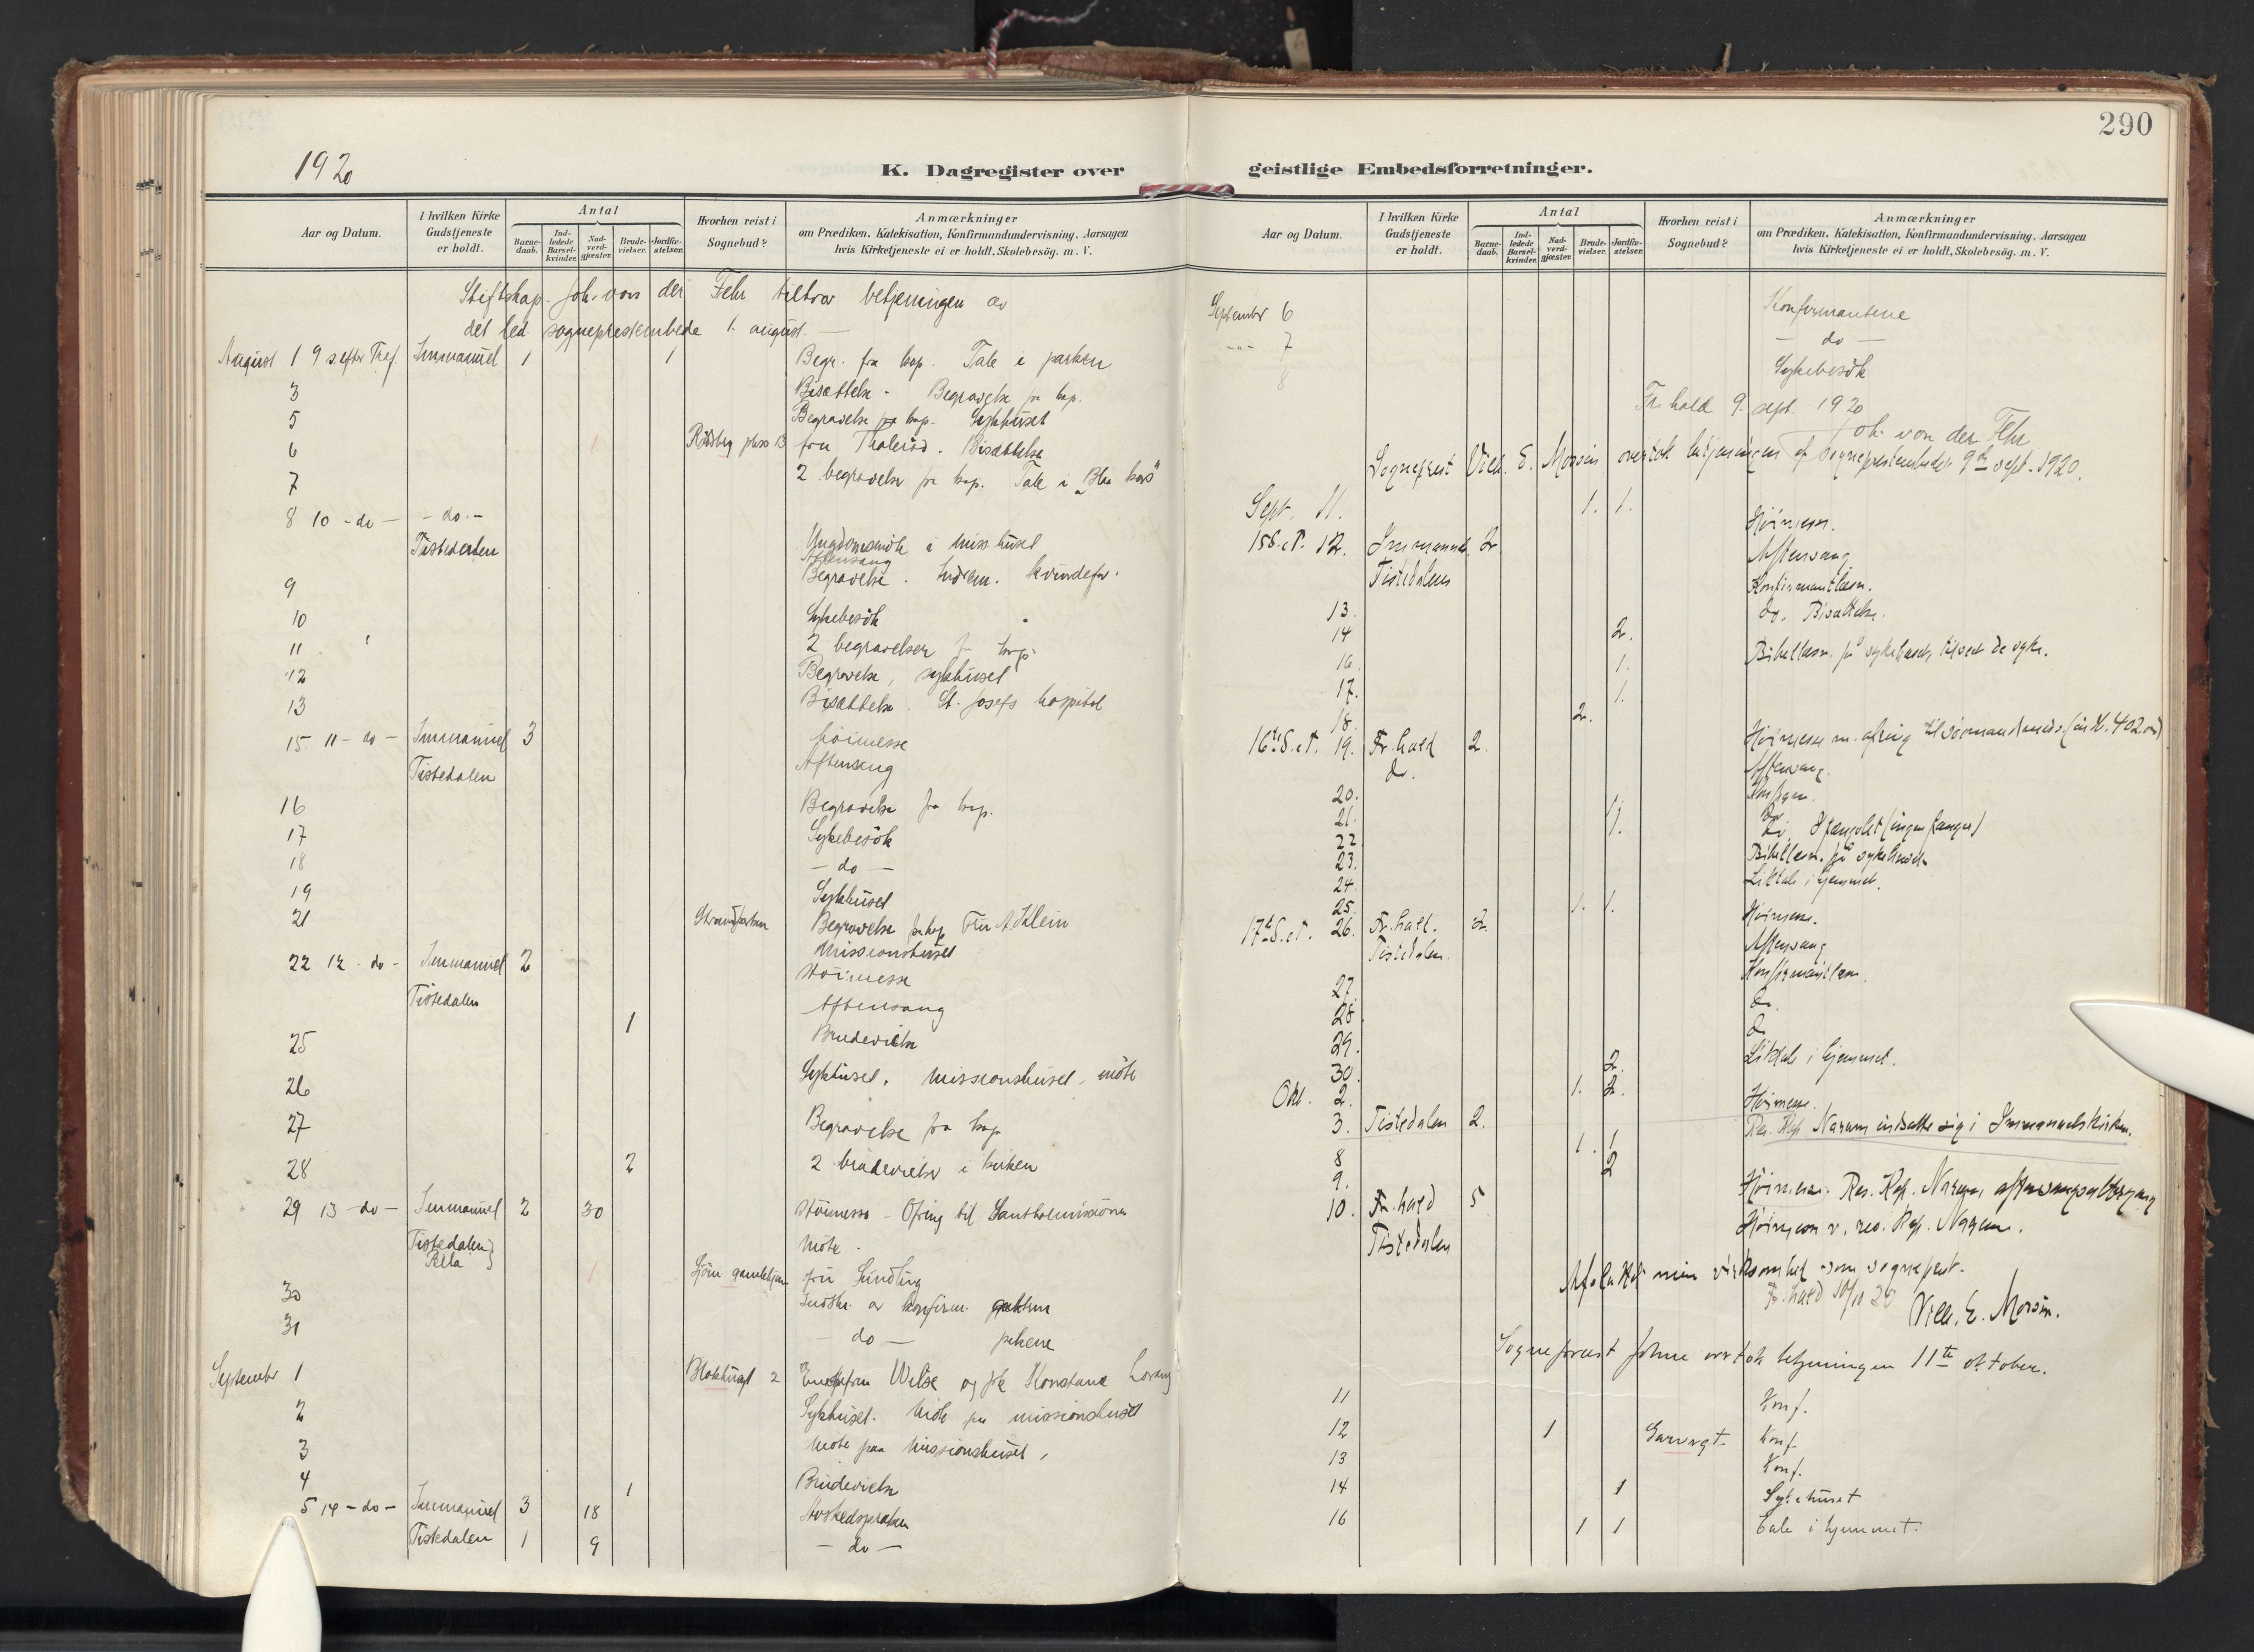 290
1920
K. Dagregister over
geistlige Embedsforretninger.
Aar og Datum.
I hvilken Kirke Gudstjeneste er holdt.
Antal
Barne-daab.
Ind-ledede Barsel-kvinder.
Nad-verd-gjæster.
Brude-vielser.
Jordfæ-stelser.
Hvorhen reist i Sognebud?
Anmærkninger
om Prædiken, Katekisation, Konfirmandundervisning, Aarsagen
hvis Kirketjeneste ei er holdt, Skolebesög. m. V.
Stiftskap. Joh. von der Fehr tiltrær betjeningen av
det led. sogneprestembede 1. august. —
August 1 9 s. efter Tref. Immanuel 1 1 Begr. fra kap. Tale i parken
3 Bisættelse - Begravelse fra kap.
5 Begravelse fra kap. Sykhuset
6 Rødsberg pleie 13 1 fru Bisættelse
7 2 begravelser fra kap. Tale i "Blaa kors"
8 10 - do - - do - 
Tistedalen Ungdomsmöte i miss.huset
Aftensang
9 Begravelse. Indrem. kvindefor.
10 Sykebesök
11 2 begravelser fra kap.
12 Begravelse, sykhuset
13 Bisættelse. St. Josefs hospital
15 11 - do - Immanuel 3 höimesse
Tistedalen Aftensang
16 Begravelse fra kap.
17 Sykebesök
18 - do -
19 Sykhuset
21 Begravelse fra kap. Fru A. Klein
Missionshuset
22 12 - do - Immanuel 2 Höimesse
Tistedalen Aftensang
25 1 Brudevielse
26 Sykhuset. Missionshuset, möte
27 Begravelse fra kap
28 2 2 brudevielser i kirken
29 13 - do - Immanuel 2 30 Höimesse - Ofring til Santhalmissionen
Tistedalen Möte.
fru Sundling
30 Indskr. av konfirm. guttene
31 - do - pikene
September 1 Blokhuset 2 Enkefru Wilse og frk Konstanse
2 Sykhuset. Möte paa missionshuset
3 Möte paa Missionshuset,
4 1 Brudevielse
5 14 - do - Immanuel 3 18 Avskedspræken
Tistedalen 1 9 - do -
Aar og Datum.
I hvilken Kirke Gudstjeneste er holdt.
Antal
Barne-daab.
Ind-ledede Barsel-kvinder.
Nad-verd-gjæster.
Brude-vielser.
Jordfæ-stelser.
Hvorhen reist i Sognebud?
Anmærkninger
om Prædiken, Katekisation, Konfirmandundervisning, Aarsagen
hvis Kirketjeneste ei er holdt, Skolebesög. m. V.
September 6 Konfirmantene
-"- 7 - do -
8 Sykebesök
Fr.hald 9. sept. 1920
Joh. von der Fehr
Sogneprest Vilh. E. Morsin overtok betjeningen af sogneprestembedet 9de sept. 1920.
Sept. 11. 1. 1.
15 S.e.T. 12. Immanuel. 2 Höimesse.
Tistedalen Aftensang
13. Konfirmantlæsn.
14 2. do. Bisættelse.
16. 1. Bibellæsn. på sykehuset, tilseet de syke.
17. 1.
18. 2.
16de S.e.T. 19. Fr.hald 2. Höimesse m. ofring til (in K. 402 )
do. Aftensang.
20. Konfirm.
21. 1. do.
22 1. do. Hfængslet (ingen fanger)
23. Bibellæsn. på sykehuset.
24. Liktale i hjemmet.
25. 1. 1.
17de S.e.T. 26. Fr.hald. 2. Höimesse.
Tistedalen. Aftensang
27. Konfirmantlæsn.
28 do.
29. do
30. 2. Liktale i hjemmet.
Okt. 2. 1. 2.
3. Tistedalen 2. Höimesse.
Res. Kap. Narum indsatte sig i Immanuelskirken.
8 1. 1
9. 2
10. Fr.hald 5 Höimesse. Res. Kap. Narum,
Tistedalen Höimesse v. res. Kap. Narum.
Afsluttet min virksomhed som sogneprest.
Fr.hald 10/10 20 Vilh. E. Morsin.
Sogneprest overtok betjeningen 11te oktober.
11 Konf.
12 1 Konf.
13 Konf.
14 1 Sykehuset
16 1 1 Tale i hjemmet.